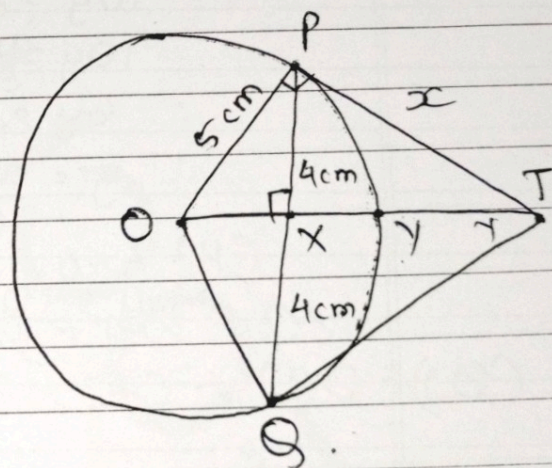 P
5 cm
x
4cm
T
O
X
y
r
4cm
Q.